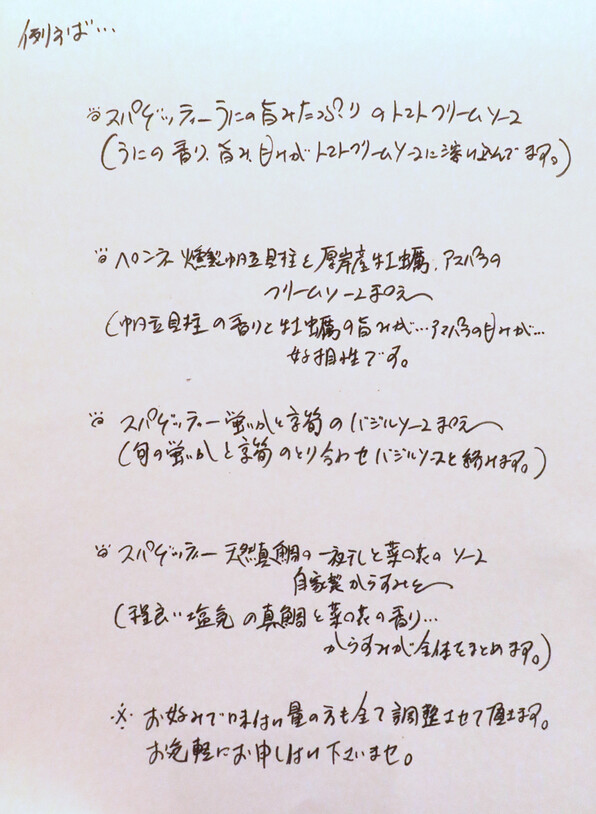 例えば…
スパゲッティーうにの旨みたっぷりのトマトクリームソース
(うにの香り、旨み、甘みがトマトクリームソースに溶け込んでます。)
ペンネ 燻製帆立貝柱と厚岸産牡蠣、アスパラの
クリームソース和え
(帆立貝柱の香りと牡蠣の旨みが…アスパラの甘みが…
好相性です。)
スパゲッティー蛍いかと京筍のバジルソース和え
(旬の蛍いかと京筍のとり合わせバジルソースと絡みます。)
スパゲッティー天然真鯛の一夜干しと菜の花のソース
自家製からすみを
(程良い塩気の真鯛と菜の花の香り…
からすみが全体をまとめます。)
※お好みで味付け量の方も全て調整させて頂きます。
お気軽にお申し付け下さいませ。